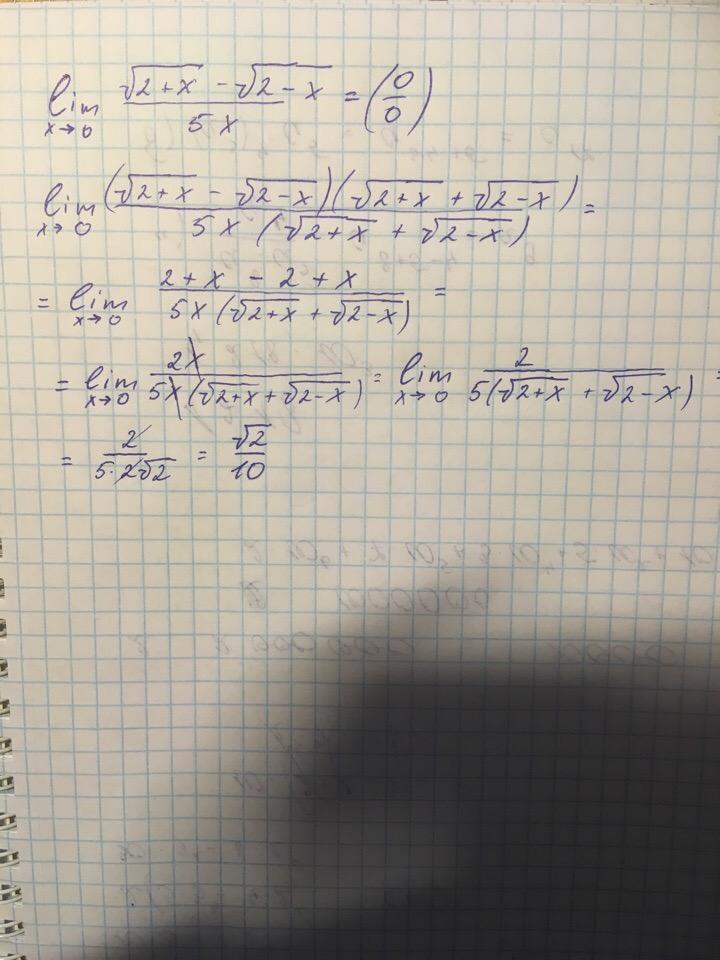 lim x→0 (√(2+x) − √(2−x)) / 5x = (0/0)
lim x→0 (√(2+x) − √(2−x))(√(2+x) + √(2−x)) / 5x (√(2+x) + √(2−x)) =
= lim x→0 (2+x − 2+x) / 5x(√(2+x) + √(2−x)) =
= lim x→0 2x / 5x(√(2+x) + √(2−x)) = lim x→0 2 / 5(√(2+x) + √(2−x)) =
= 2 / 5·2√2 = √2 / 10